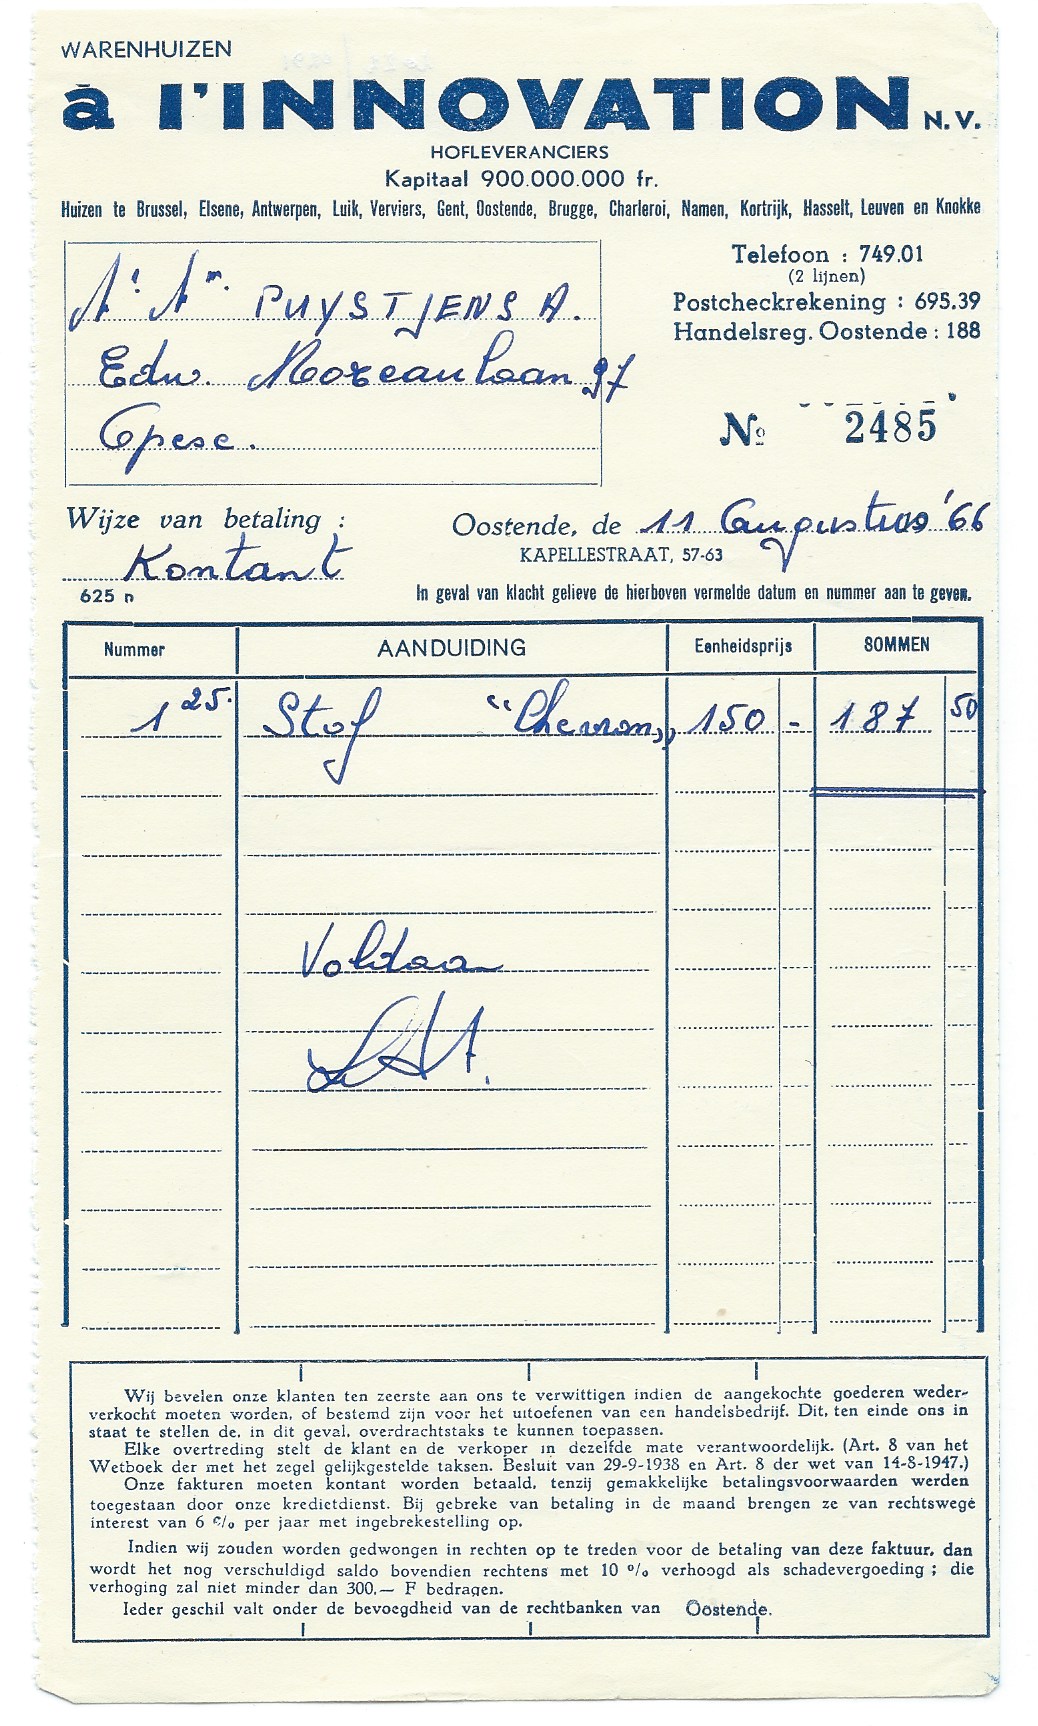 WARENHUIZEN
à l'INNOVATION N.V.
HOFLEVERANCIERS
Kapitaal 900.000.000 fr.
Huizen te Brussel, Elsene, Antwerpen, Luik, Verviers, Gent, Oostende, Brugge, Charleroi, Namen, Kortrijk, Hasselt, Leuven en Knokke
Telefoon : 749.01
(2 lijnen)
Postcheckrekening : 695.39
Handelsreg. Oostende : 188
PUYSTJENS A.
Edw. Mozeaulaan 97
Epese.
No 2485
Wijze van betaling :
Kontant
Oostende, de 11 Augustus '66
KAPELLESTRAAT, 57-63
625 n
In geval van klacht gelieve de hierboven vermelde datum en nummer aan te geven.
Nummer AANDUIDING Eenheidsprijs SOMMEN
1 25. Stof "Chevron" 150 - 187 50
Voldaan
Wij bevelen onze klanten ten zeerste aan ons te verwittigen indien de aangekochte goederen weder-
verkocht moeten worden, of bestemd zijn voor het uitoefenen van een handelsbedrijf. Dit, ten einde ons in
staat te stellen de, in dit geval, overdrachtstaks te kunnen toepassen.
Elke overtreding stelt de klant en de verkoper in dezelfde mate verantwoordelijk. (Art. 8 van het
Wetboek der met het zegel gelijkgestelde taksen. Besluit van 29-9-1938 en Art. 8 der wet van 14-8-1947.)
Onze fakturen moeten kontant worden betaald, tenzij gemakkelijke betalingsvoorwaarden werden
toegestaan door onze kredietdienst. Bij gebreke van betaling in de maand brengen ze van rechtswege
interest van 6 % per jaar met ingebrekestelling op.
Indien wij zouden worden gedwongen in rechten op te treden voor de betaling van deze faktuur, dan
wordt het nog verschuldigd saldo bovendien rechtens met 10 % verhoogd als schadevergoeding ; die
verhoging zal niet minder dan 300,— F bedragen.
Ieder geschil valt onder de bevoegdheid van de rechtbanken van Oostende.